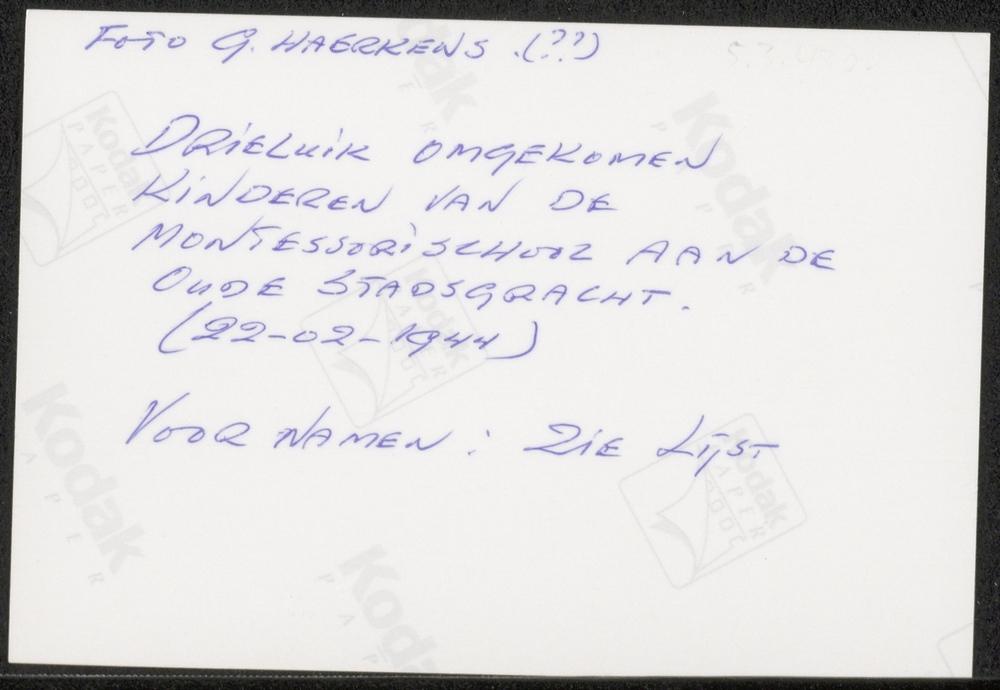 FOTO G. HAERKENS.(??)
DRIELUIK OMGEKOMEN
KINDEREN VAN DE
MONTESSORISCHOOL AAN DE
OUDE STADSGRACHT.
(22-02-1944)
VOOR NAMEN: ZIE LIJST
Kodak
PAPER
Kodak
PAPER
Kodak
P
Kodak
PAPER
Kodak
PAPER
Kodak
PAPER
Kodak
P A P